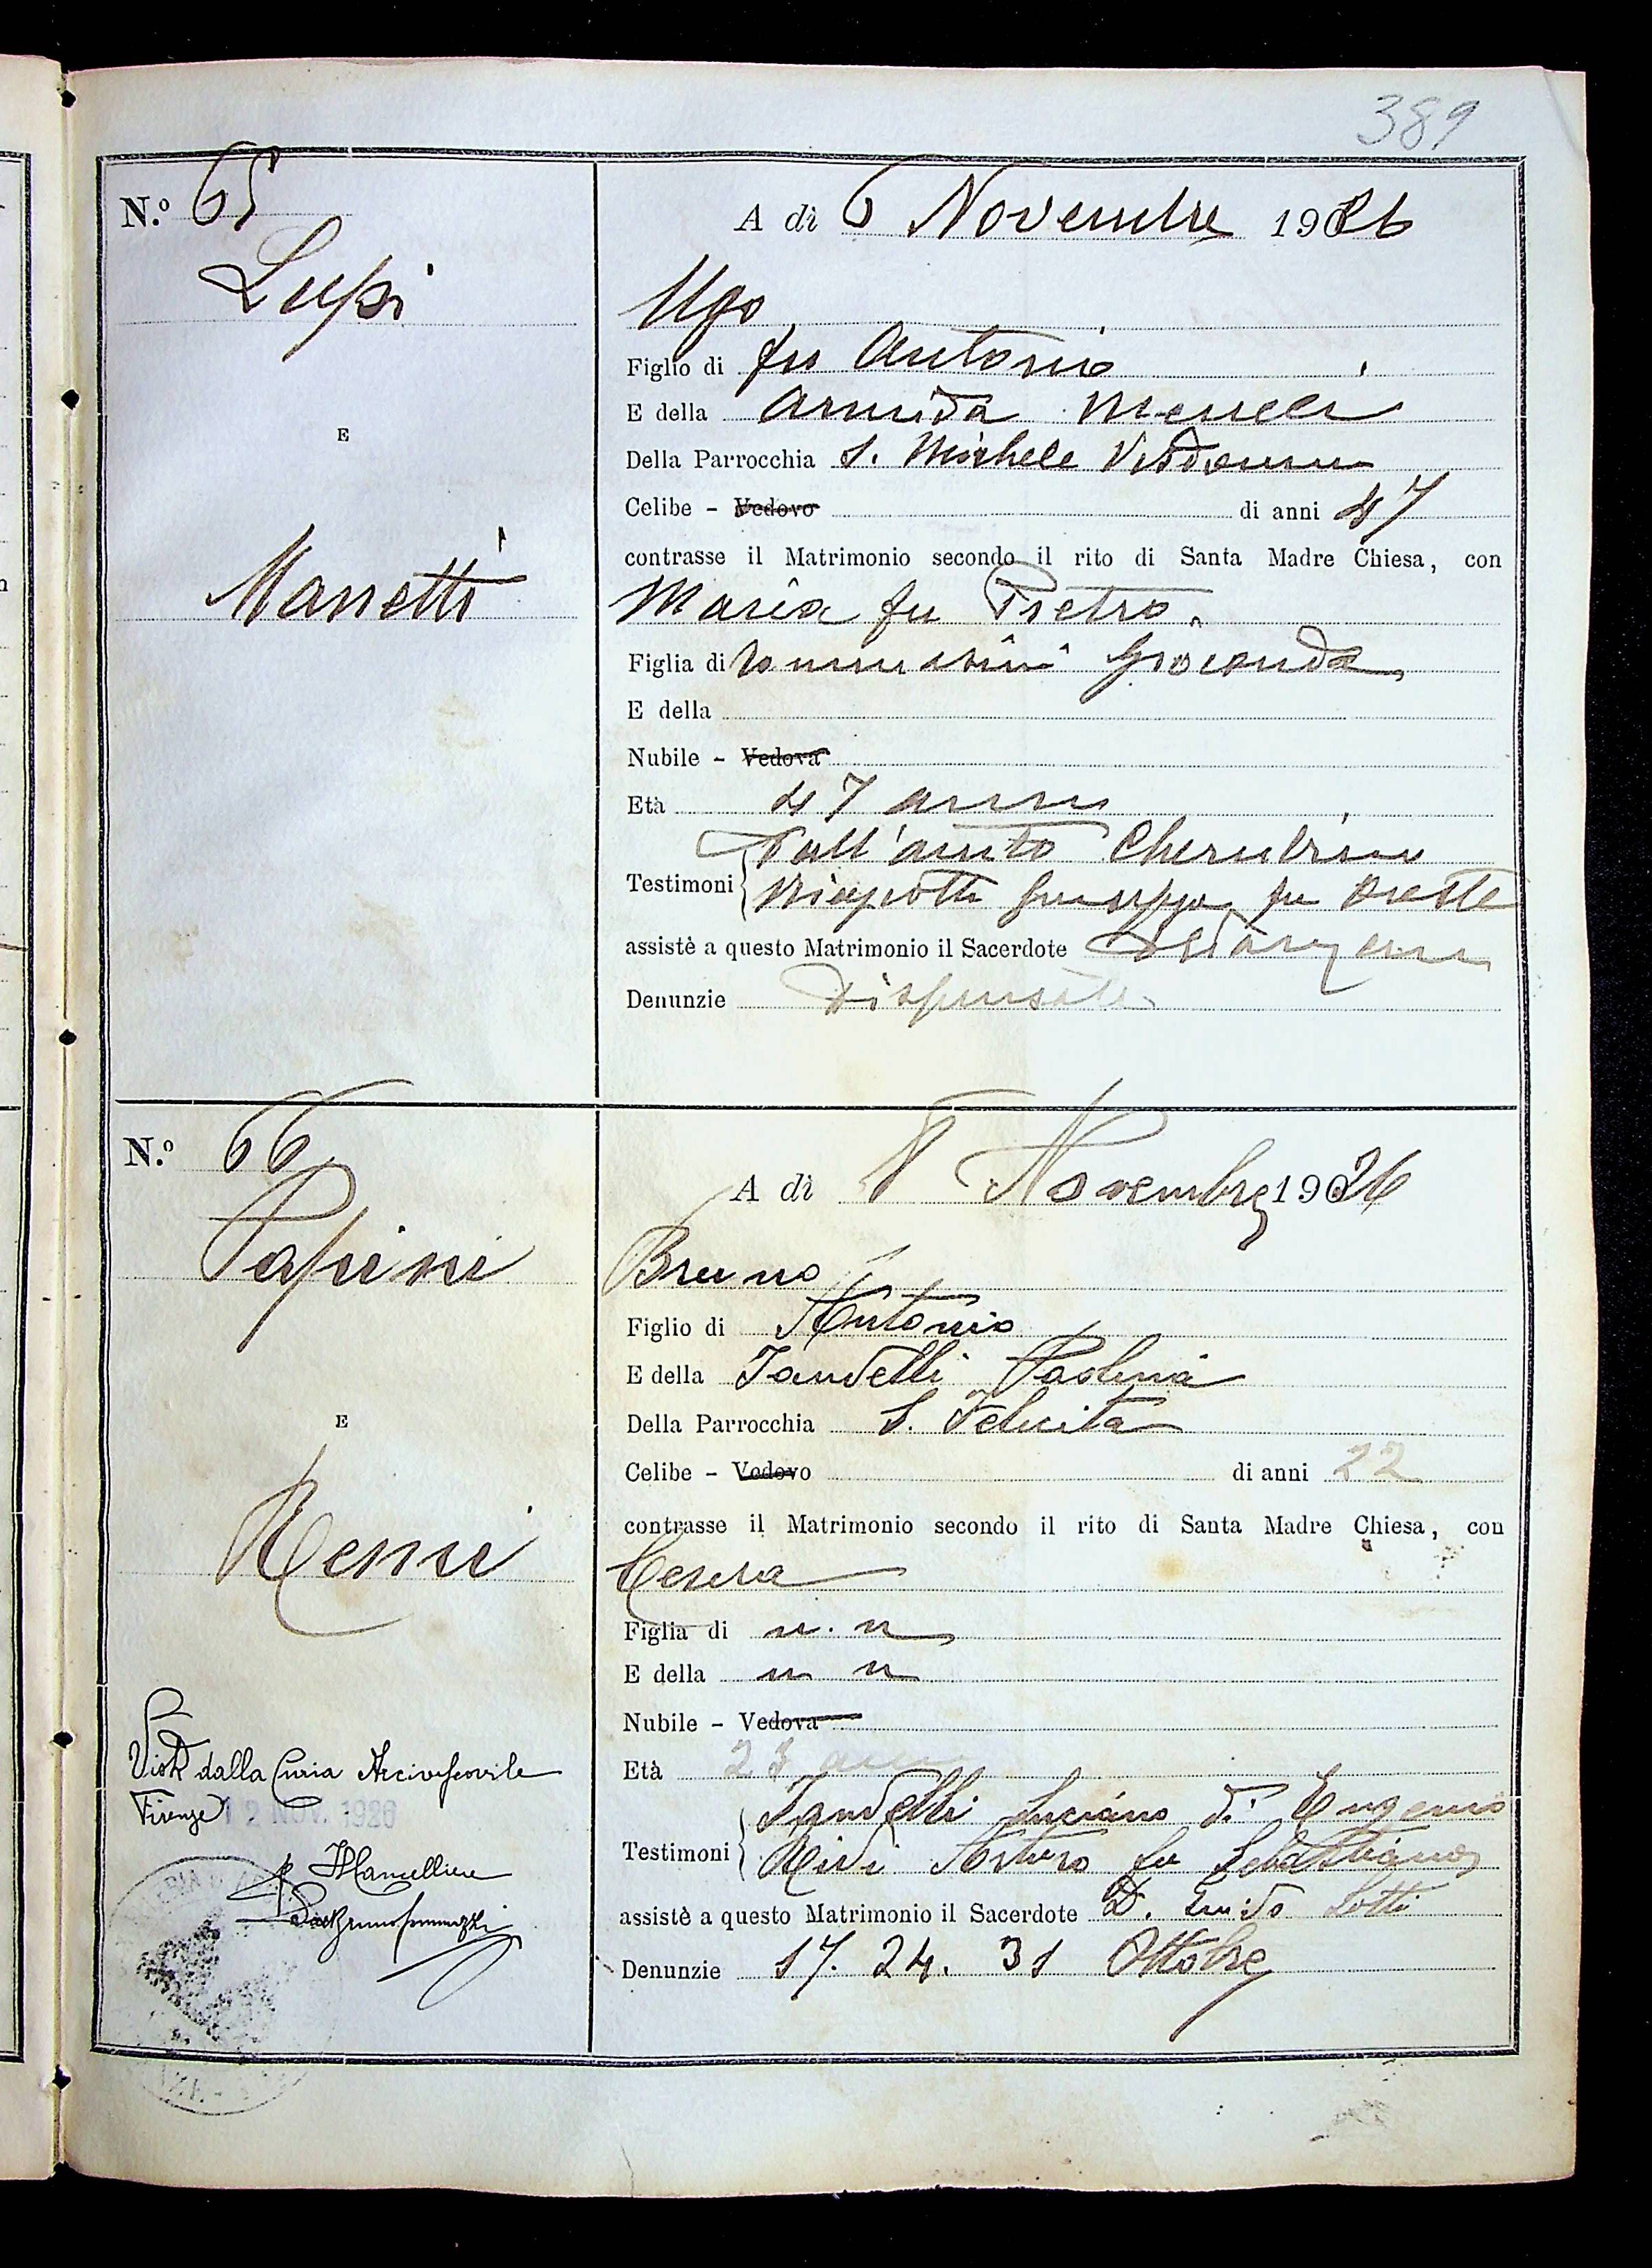 389
N.º 65
A dì 6 Novembre 1926
Lupi
Ugo
Figlio di fu Antonio
E della Armida
Della Parrocchia S. Michele Visdomini
E
Celibe - Vedovo di anni 47
contrasse il Matrimonio secondo il rito di Santa Madre Chiesa, con
Manetti
Maria fu Pietro
Figlia di Gioconda
E della
Nubile - Vedova
Età 47 anni
Dall'amico Cherubini
Testimoni Giuseppe fu Oreste
assistè a questo Matrimonio il Sacerdote
Denunzie Dispensate
N.º 66
A dì 8 Novembre 1926
Papini
Bruno
Figlio di Antonio
E della Fandelli Paolina
Della Parrocchia S. Felicita
E
Celibe - Vedovo di anni 22
contrasse il Matrimonio secondo il rito di Santa Madre Chiesa, con
Nenni
Cesira
Figlia di n. n
E della n n
Nubile - Vedova
Età 23 anni
Visto dalla Curia Arcivescovile
Firenze 12 NOV. 1926
Fandelli Luciano di Eugenio
Testimoni Arturo fu Sebastiano
Il Cancelliere
assistè a questo Matrimonio il Sacerdote D. Guido Lotti
Denunzie 17. 24. 31 Ottobre